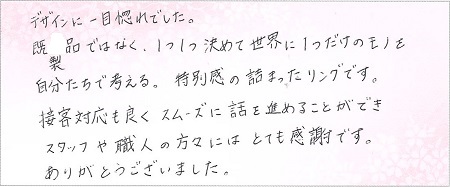 デザインに一目惚れでした。
既製品ではなく、1つ1つ決めて世界に1つだけのモノを
自分たちで考える。特別感の詰まったリングです。
接客対応も良くスムーズに話を進めることができ
スタッフや職人の方々にはとても感謝です。
ありがとうございました。